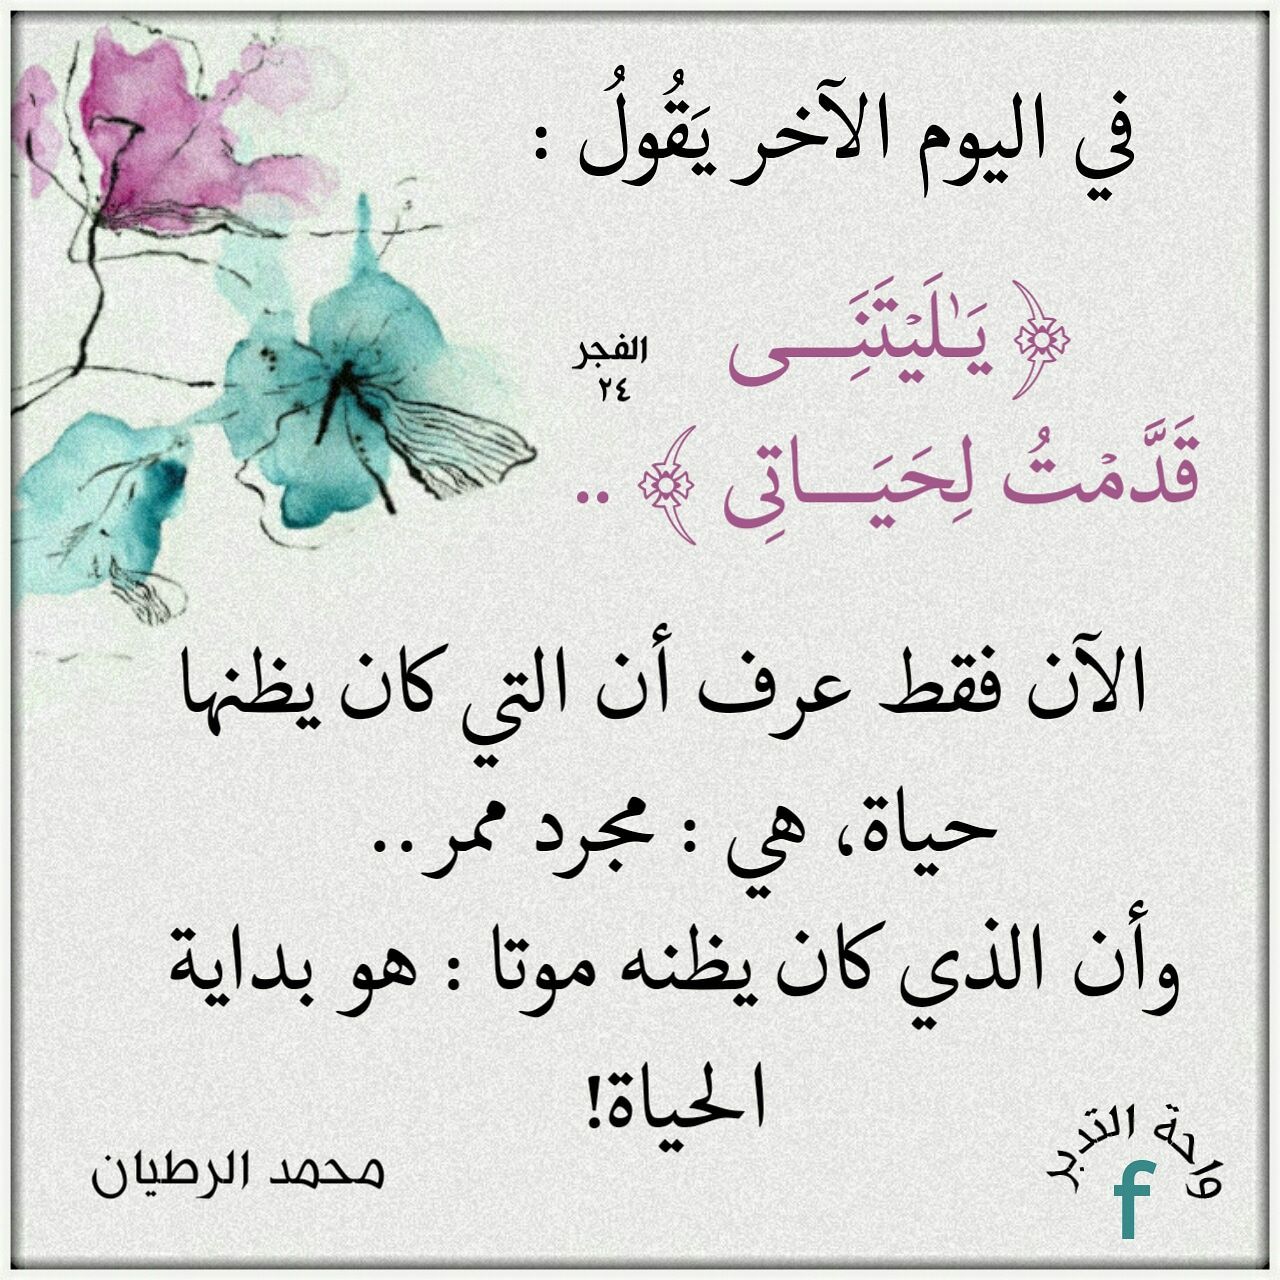 في اليوم الآخر يَقُولُ :
﴿ يَـٰلَيۡتَنِـــى
الفجر
٢٤
قَدَّمۡتُ لِحَيَـــاتِى ﴾ ..
الآن فقط عرف أن التي كان يظنها
حياة، هي : مجرد ممر ..
وأن الذي كان يظنه موتا : هو بداية
الحياة!
محمد الرطيان
واحة التدبر
f